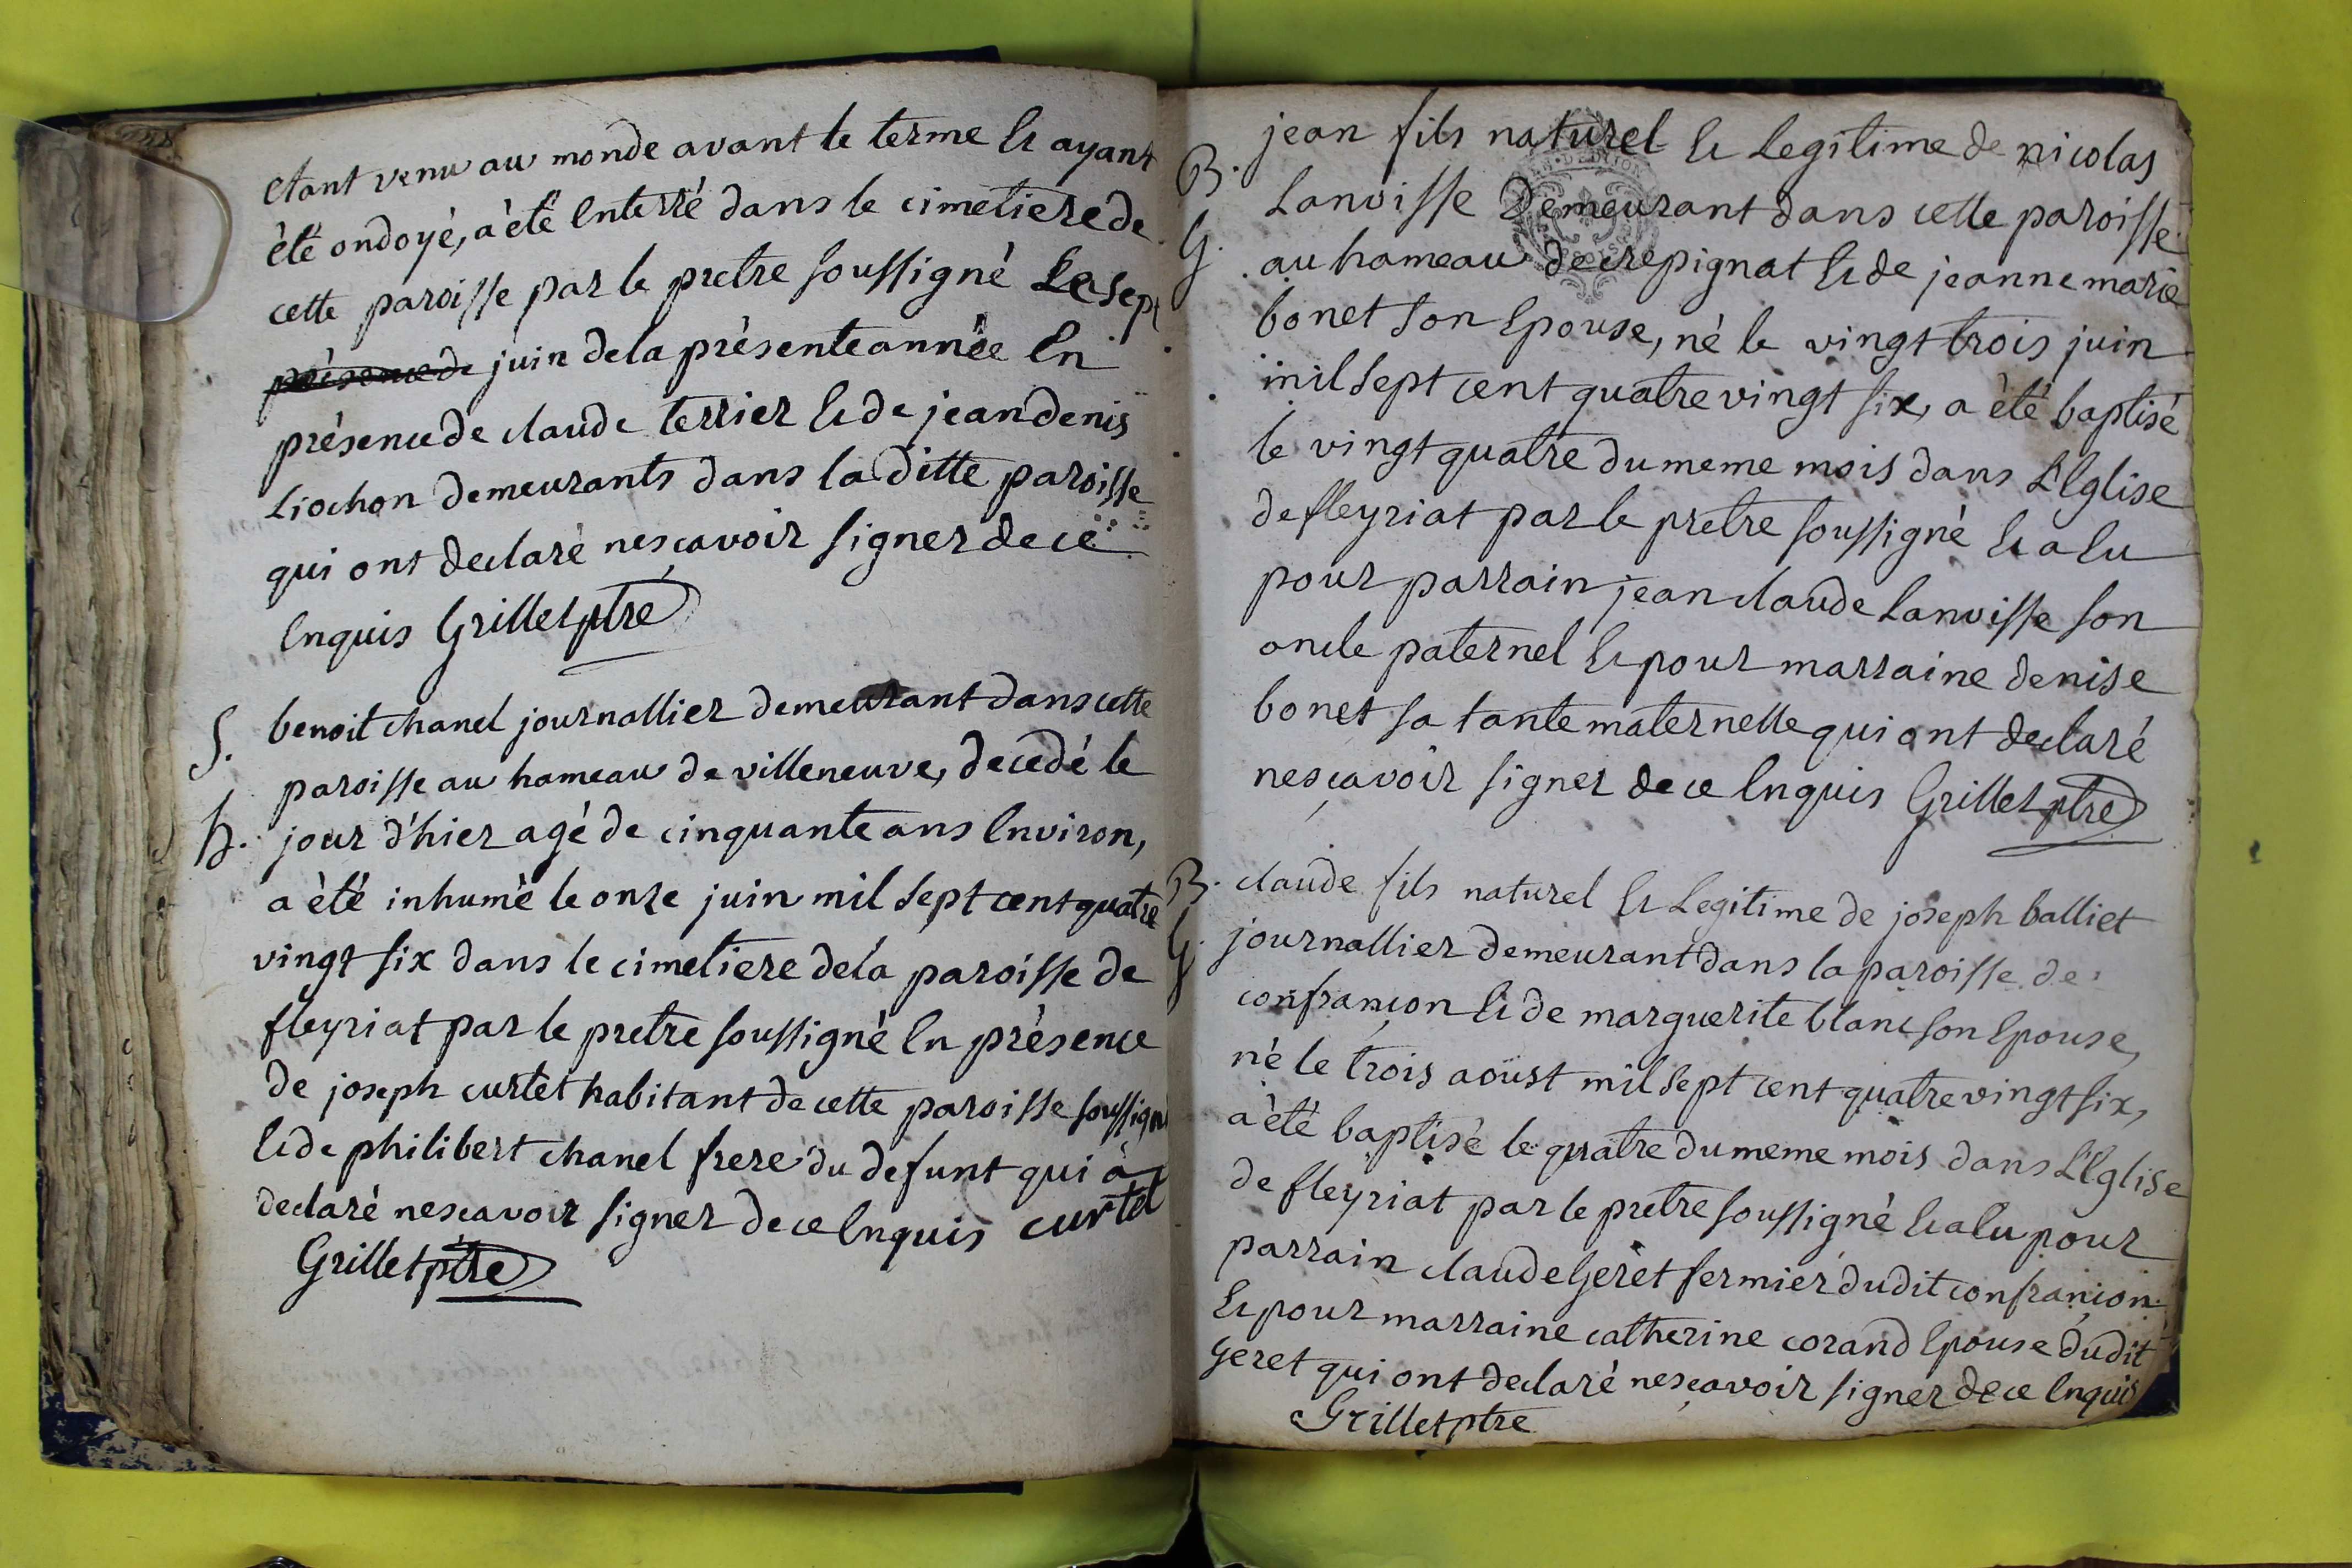 etant venu au monde avant le terme et ayant
èté ondoyé, a èté enterré dans le cimetiere de
cette paroisse par le pretre soussigné Le sept
présence de juin de la présente année en
présence de claude terrier et de jean denis
Liochon demeurants dans la ditte paroisse
qui ont declaré ne sçavoir signer de ce
enquis Grillet ptre
S. benoit chanel journallier demeurant dans cette
paroisse au hameau de villeneuve, decedé le
h. jour d'hier agé de cinquante ans environ,
a èté inhumè le onze juin mil sept cent quatre
vingt six dans le cimetiere de la paroisse de
fleyriat par le pretre soussigné en présence
de joseph curtet habitant de cette paroisse soussigné
et de philibert chanel frere du defunt qui à
declaré ne scavoir signer de ce enquis curtet
Grillet ptre
B. jean fils naturel et Legitime de nicolas
Lanvisse demeurant dans cette paroisse
G. au hameau de crepignat et de jeanne marie
bonet son epouse, nè le vingt trois juin
mil sept cent quatre vingt six, a èté baptisé
le vingt quatre du meme mois dans L'Eglise
de fleyriat par le pretre soussigné et a eu
pour parrain jean claude Lanvisse son
oncle paternel et pour marraine denise
bonet sa tante maternelle qui ont declaré
ne sçavoir signer de ce enquis Grillet ptre
B. claude fils naturel et Legitime de joseph balliet
G. journallier demeurant dans la paroisse de
confrançon et de marguerite blanc son epouse,
nè le trois aoust mil sept cent quatre vingt six,
a èté baptisé le quatre du meme mois dans L'Eglise
de fleyriat par le pretre soussigné et a eu pour
parrain claude Geret fermier dudit confrançon
et pour marraine catherine corand epouse dudit
Geret qui ont declaré ne sçavoir signer de ce enquis
Grillet ptre